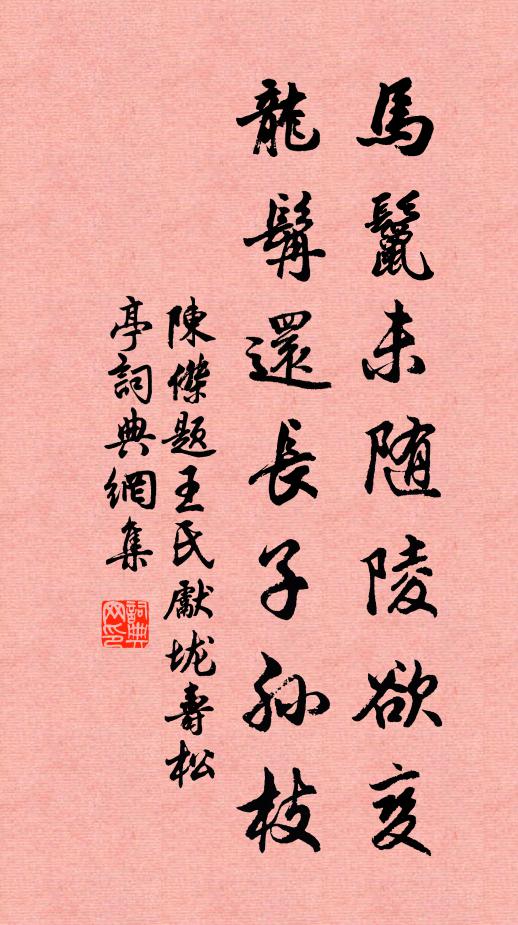 馬鬣未随陵欲变
龍髯還長子孫枝
陳傑題王氏獻垅壽松
亭詞典網集
詞典網印